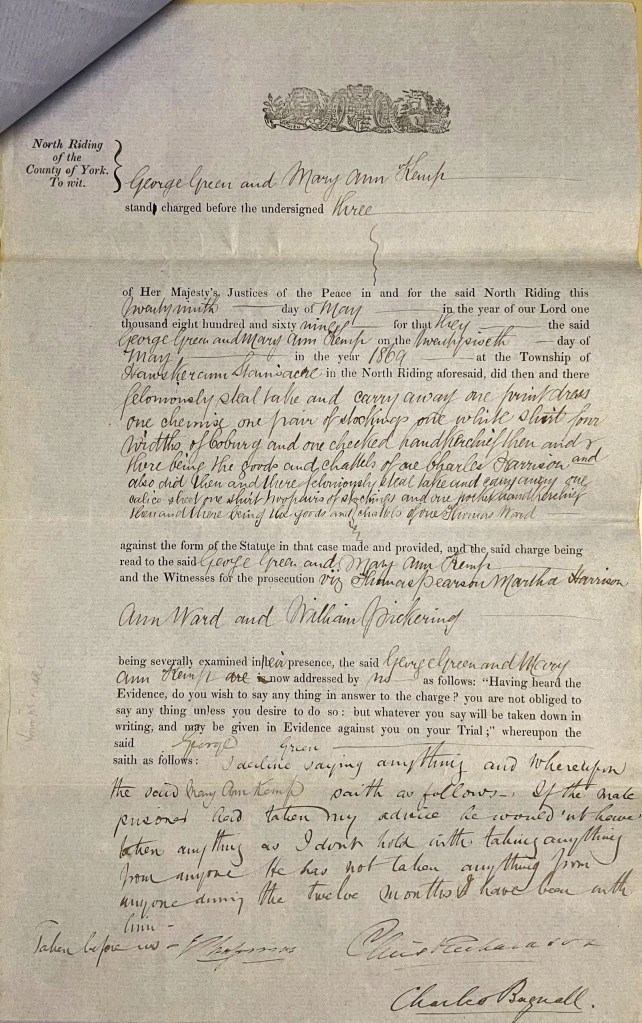 North Riding
of the
County of York.
To wit.
George Green and Mary Ann Kemp
stand charged before the undersigned three
of Her Majesty's Justices of the Peace in and for the said North Riding this
twentyninth day of May in the year of our Lord one
thousand eight hundred and sixty nine for that they the said
George Green and Mary Ann Kemp on the twentysixth day of
May in the year 1869 at the Township of
Hawsker cum Stainsacre in the North Riding aforesaid, did then and there
feloniously steal take and carry away one print dress
one chemise one pair of stockings one white skirt four
widths of coburg and one checked handkerchief then and
there being the goods and chattels of one Charles Harrison and
also did then and there feloniously steal take and carry away one
calico sheet one shirt two pairs of stockings and one pocket handkerchief
then and there being the goods and chattels of one Thomas Ward
against the form of the Statute in that case made and provided, and the said charge being
read to the said George Green and Mary Ann Kemp
and the Witnesses for the prosecution viz Thomas Pearson Martha Harrison
Ann Ward and William Pickering
being severally examined in their presence, the said George Green and Mary
Ann Kemp are now addressed by us as follows: "Having heard the
Evidence, do you wish to say any thing in answer to the charge? you are not obliged to
say any thing unless you desire to do so: but whatever you say will be taken down in
writing, and may be given in Evidence against you on your Trial;" whereupon the
said George Green
saith as follows: I decline saying anything and Whereupon
the said Mary Ann Kemp saith as follows - If the male
prisoner had taken my advice he would n't have
taken anything as I don't hold with taking anything
from anyone He has not taken anything from
anyone during the twelve months I have been with
him -
Taken before us -
Chris Richardson
Charles Bagnall.